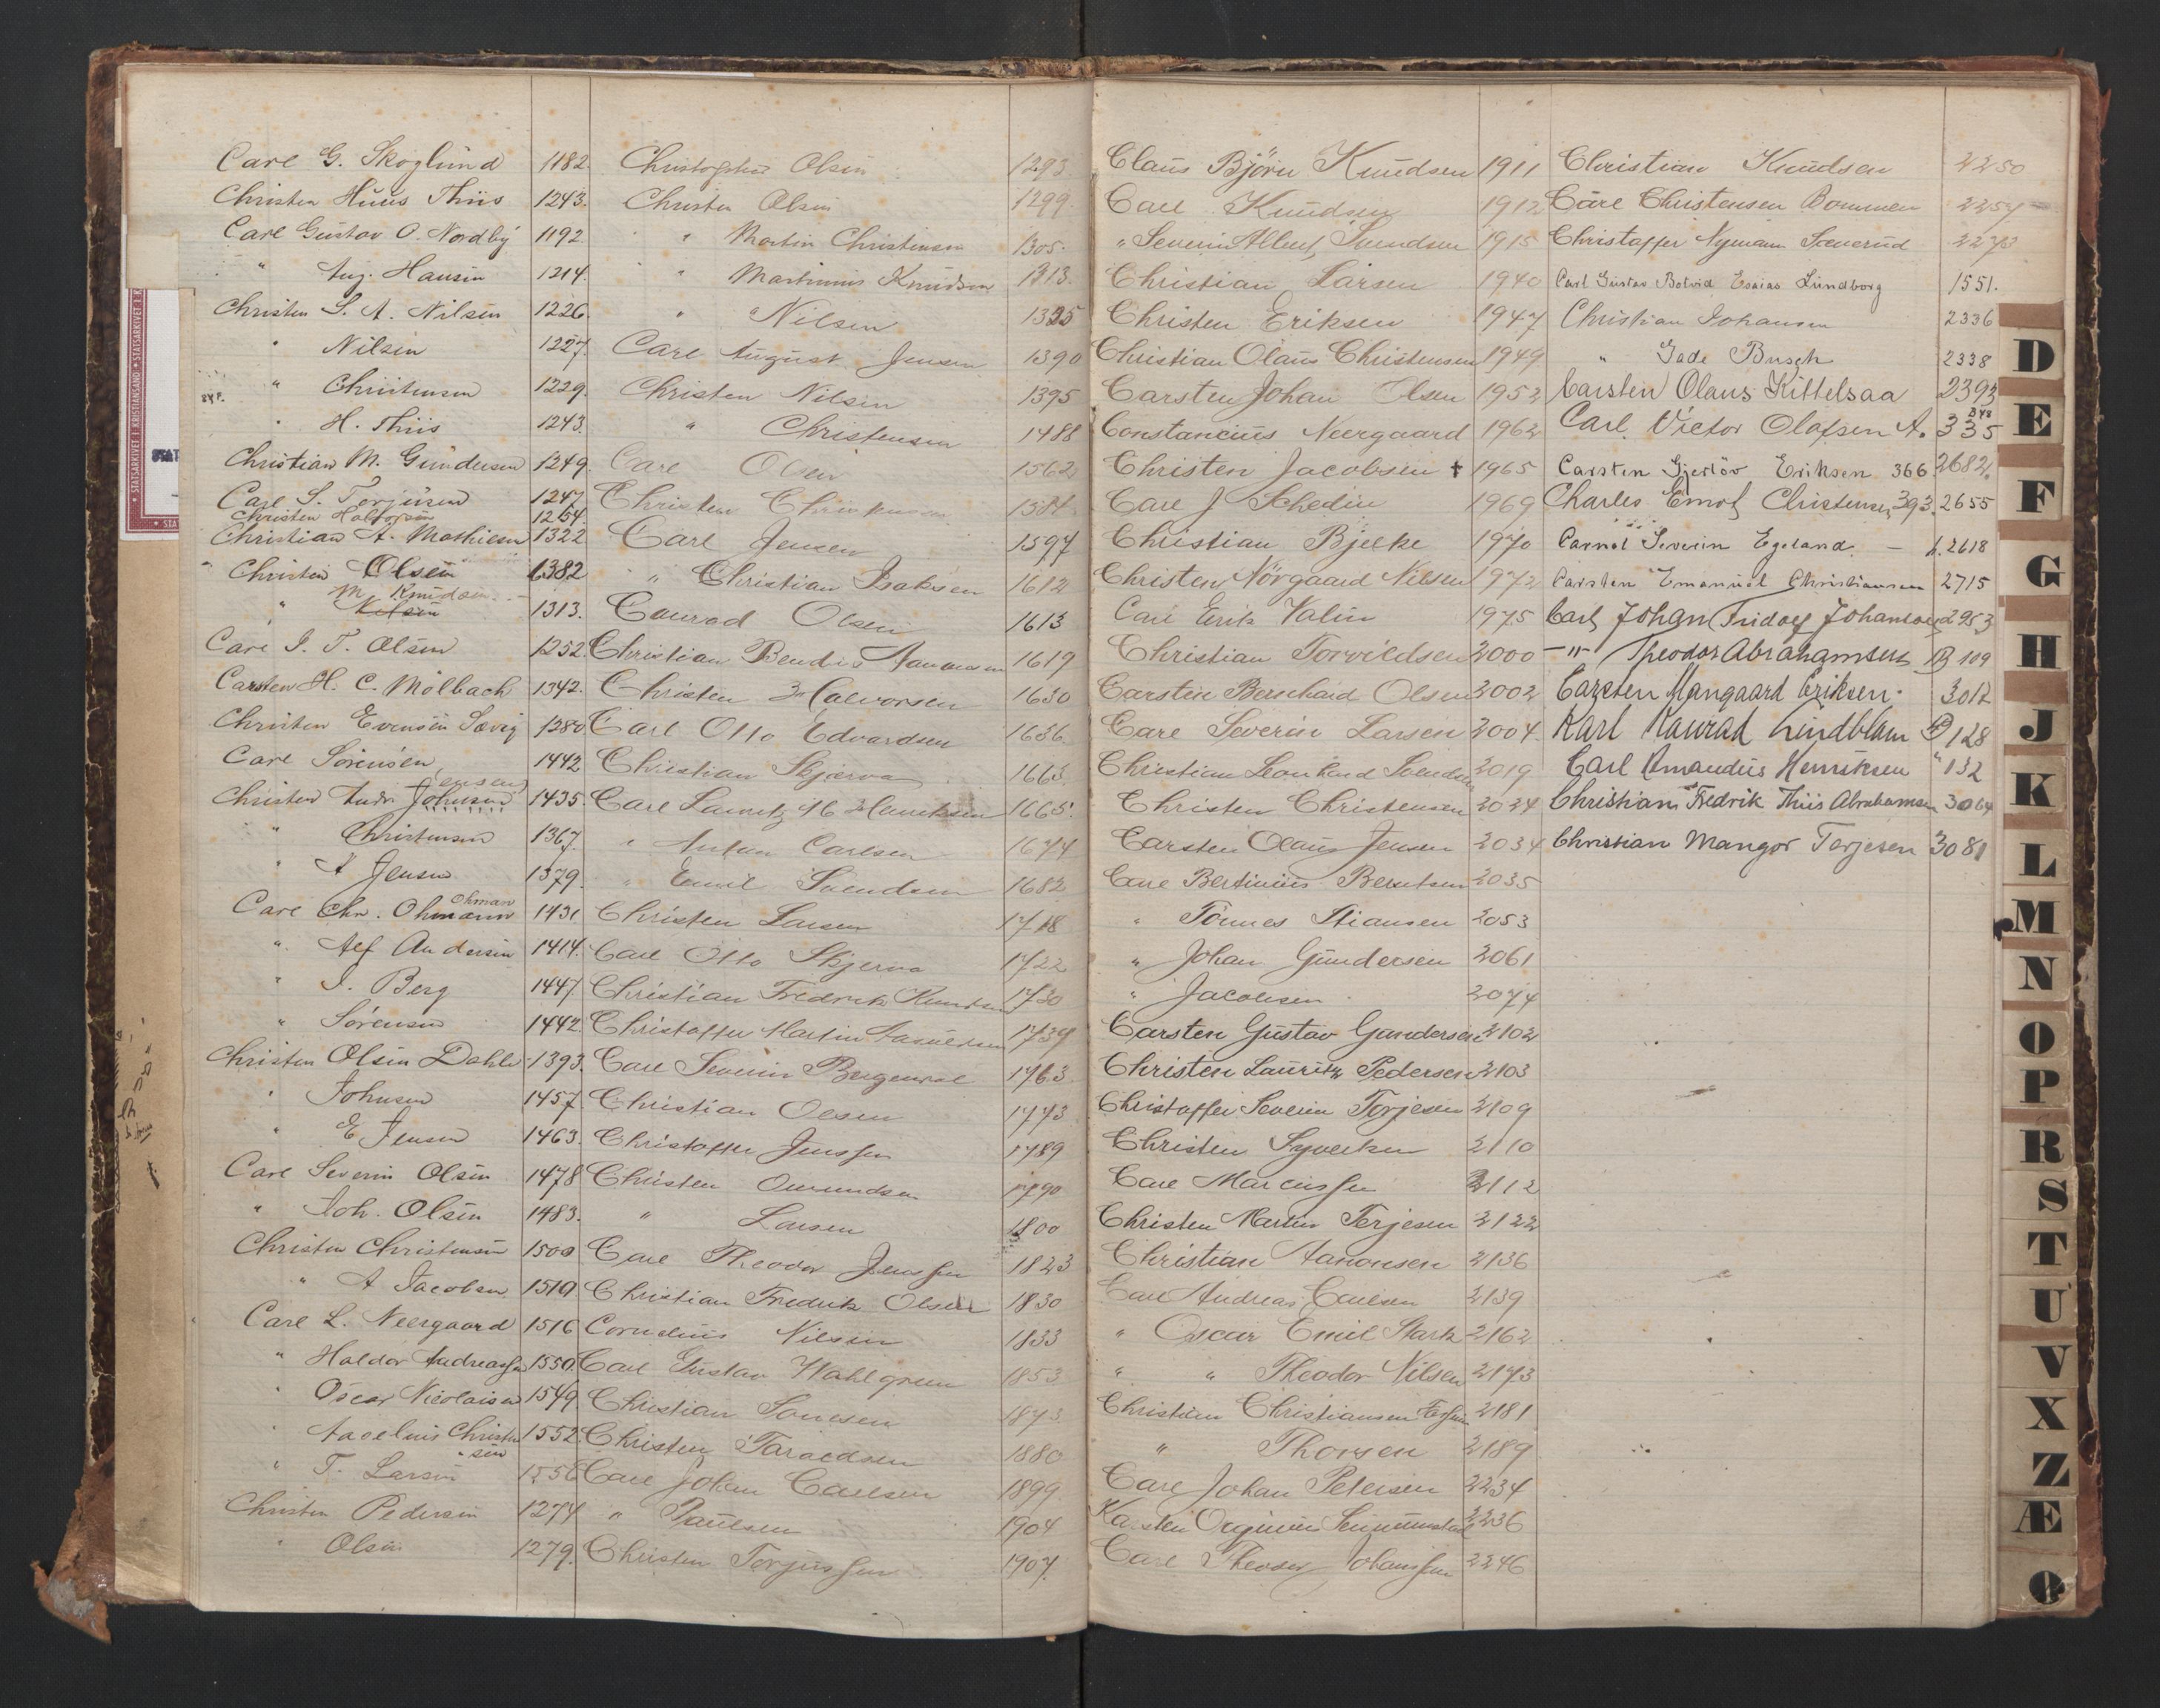 Carl G. Skoglund 1182.
Christen Huus Thiis 1243.
Carl Gustav O. Nordby 1192.
" Aug. Hansen 1214.
Christen S. A. Nilsen 1226.
" Nilsen 1227.
" Christensen 1229.
" H. Thiis 1243.
Christian M. Gundersen 1249.
Carl S. Terjesen 1247
Christen Halvorsen 1264.
Christian A. Mathiesen 1322
Christen Olsen 1382
M. Knudsen
" Nilsen 1313.
Carl J. T. Olsen 1252
Carsten H. C. Mölbach 1342.
Christen Evensen Sævig 1280
Carl Sörensen 1442
Jensen
Christen Andr. Johnsen 1435
" Christensen 1367.
" A Jensen 1379.
Ohman
Carl Chr. Ohmann 1431
" Alf Andersen 1414.
" J. Berg 1447
" Sörensen 1442
Christen Olsen Dahl 1393.
" Johnsen 1457.
" E Jensen 1463.
Carl Severin Olsen 1478
" Joh. Olsen 1483.
Christen Christensen 1500
" A Jacobsen 1510
Carl L. Neergaard 1516
" Haldor Andreassen 1550.
" Oscar Nicolaisen 1549.
" Christen 1552
sen
" T. Larsen 1556
Christen Pedersen 1274
" Olsen 1279.
Christopher Olsen 1293
Christen Olsen 1299.
" Martin Christensen 1305.
" Martinius Knudsen 1313.
" Nilsen 1325
Carl August Jensen 1390
Christen Nilsen 1395
" Christensen 1488
Carl Olsen 1562
Christen Christensen 1581
Carl Jensen 1597
" Christian Isaksen 1612
Conrad Olsen 1613
Christian Bendix Aanensen 1619
Christen Halvorsen 1630
Carl Otto Edvardsen 1636
Christian Skjerva 1663
Carl Lauritz Henriksen 1665.
" Anton Carlsen 1674
" Emil Svendsen 1682
Christen Larsen 1718
Carl Otto Skjerva 1722
Christian Fredrik Knudsen 1730
Christoffer Martin 1739
Carl Severin 1763
Christian Olsen 1773
Christoffer Jenssen 1789
Christen Omundsen 1790
" Larsen 1800
Carl Theodor Jenssen 1823
Christian Fredrik Olsen 1830
Cornelius Nilsen 1833
Carl Gustav Wahlgreen 1853
Christian 1873
Christen Taraldsen 1880
Carl Johan Carlsen 1899
" Paulsen 1904
Christen Terjussen 1907.
Claus Björn Knudsen 1911
Carl Knudsen 1912
" Severin Albert Svendsen 1915
Christian Larsen 1940
Christen Eriksen 1947
Christian Olaus Christensen 1949
Carsten Johan Olsen 1953
Constancius Neergaard 1962
Christen Jacobsen † 1965
Carl J Schedin 1969
Christian Bjelke 1970
Christen Nörgaard Nilsen 1972
Carl Erik Valin 1975
Christian Torvildsen 2000
Carsten Bernhard Olsen 2002
Carl Severin Larsen 2004
Christian Leonhard Svendsen 2019
Christen Christensen 2024
Carsten Olaus Jensen 2034
Carl Bertinius Berntsen 2035
" Tönnes Stiansen 2053
" Johan Gundersen 2061
" Jacobsen 2074
Carsten Gustav Gundersen 2102
Christen Lauritz Pedersen 2103
Christoffer Severin Terjesen 2109
Christen Syvertsen 2110
Carl Marcussen 2112
Christen Martin Terjesen 2122
Christian Aanonsen 2136
Carl Andreas Carlsen 2139
" Oscar Emil Stark 2162
" " Theodor Nilsen 2173
Christian Christiansen 2181
" Thorsen 2189
Carl Johan Petersen 2234
Karsten 2236
Carl Theodor Johanssen 2246
Christian Knudsen 2250
Carl Christensen Dommen 2257
Christoffer Nyman Soeverud 2273
Carl Gustav Botvid Esaias Lundborg 1551.
Christian Johansen 2336
" Gade Busch 2338
Carsten Olaus Kittelsaa 2393
348
Carl Victor Olafsen A. 335
Carsten Gjerlöv Eriksen 366 2682
Charles Emot Christensen 393. 2655
Carnot Severin Egeland. — 2618
Carsten Emanuel Christiansen 2715
Carl Johan Fridolf Johanson 2953
—"— Theodor Abrahamsen B 109
Carsten Mangaard Eriksen. 3012
Karl Konrad Lindblam B 128
Carl Amandus Henriksen " 132
Christian Fredrik Thiis Abrahamsen 3064
Christian Mangor Terjesen 3081
D
E
F
G
H
J
K
L
M
N
O
P
R
S
T
U
V
X
Z
Æ
Ø
STATSARKIVET I KRISTIANSAND